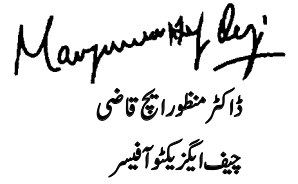 ڈاکٹر منظور ایچ قاضی
چیف ایگزیکٹو آفیسر